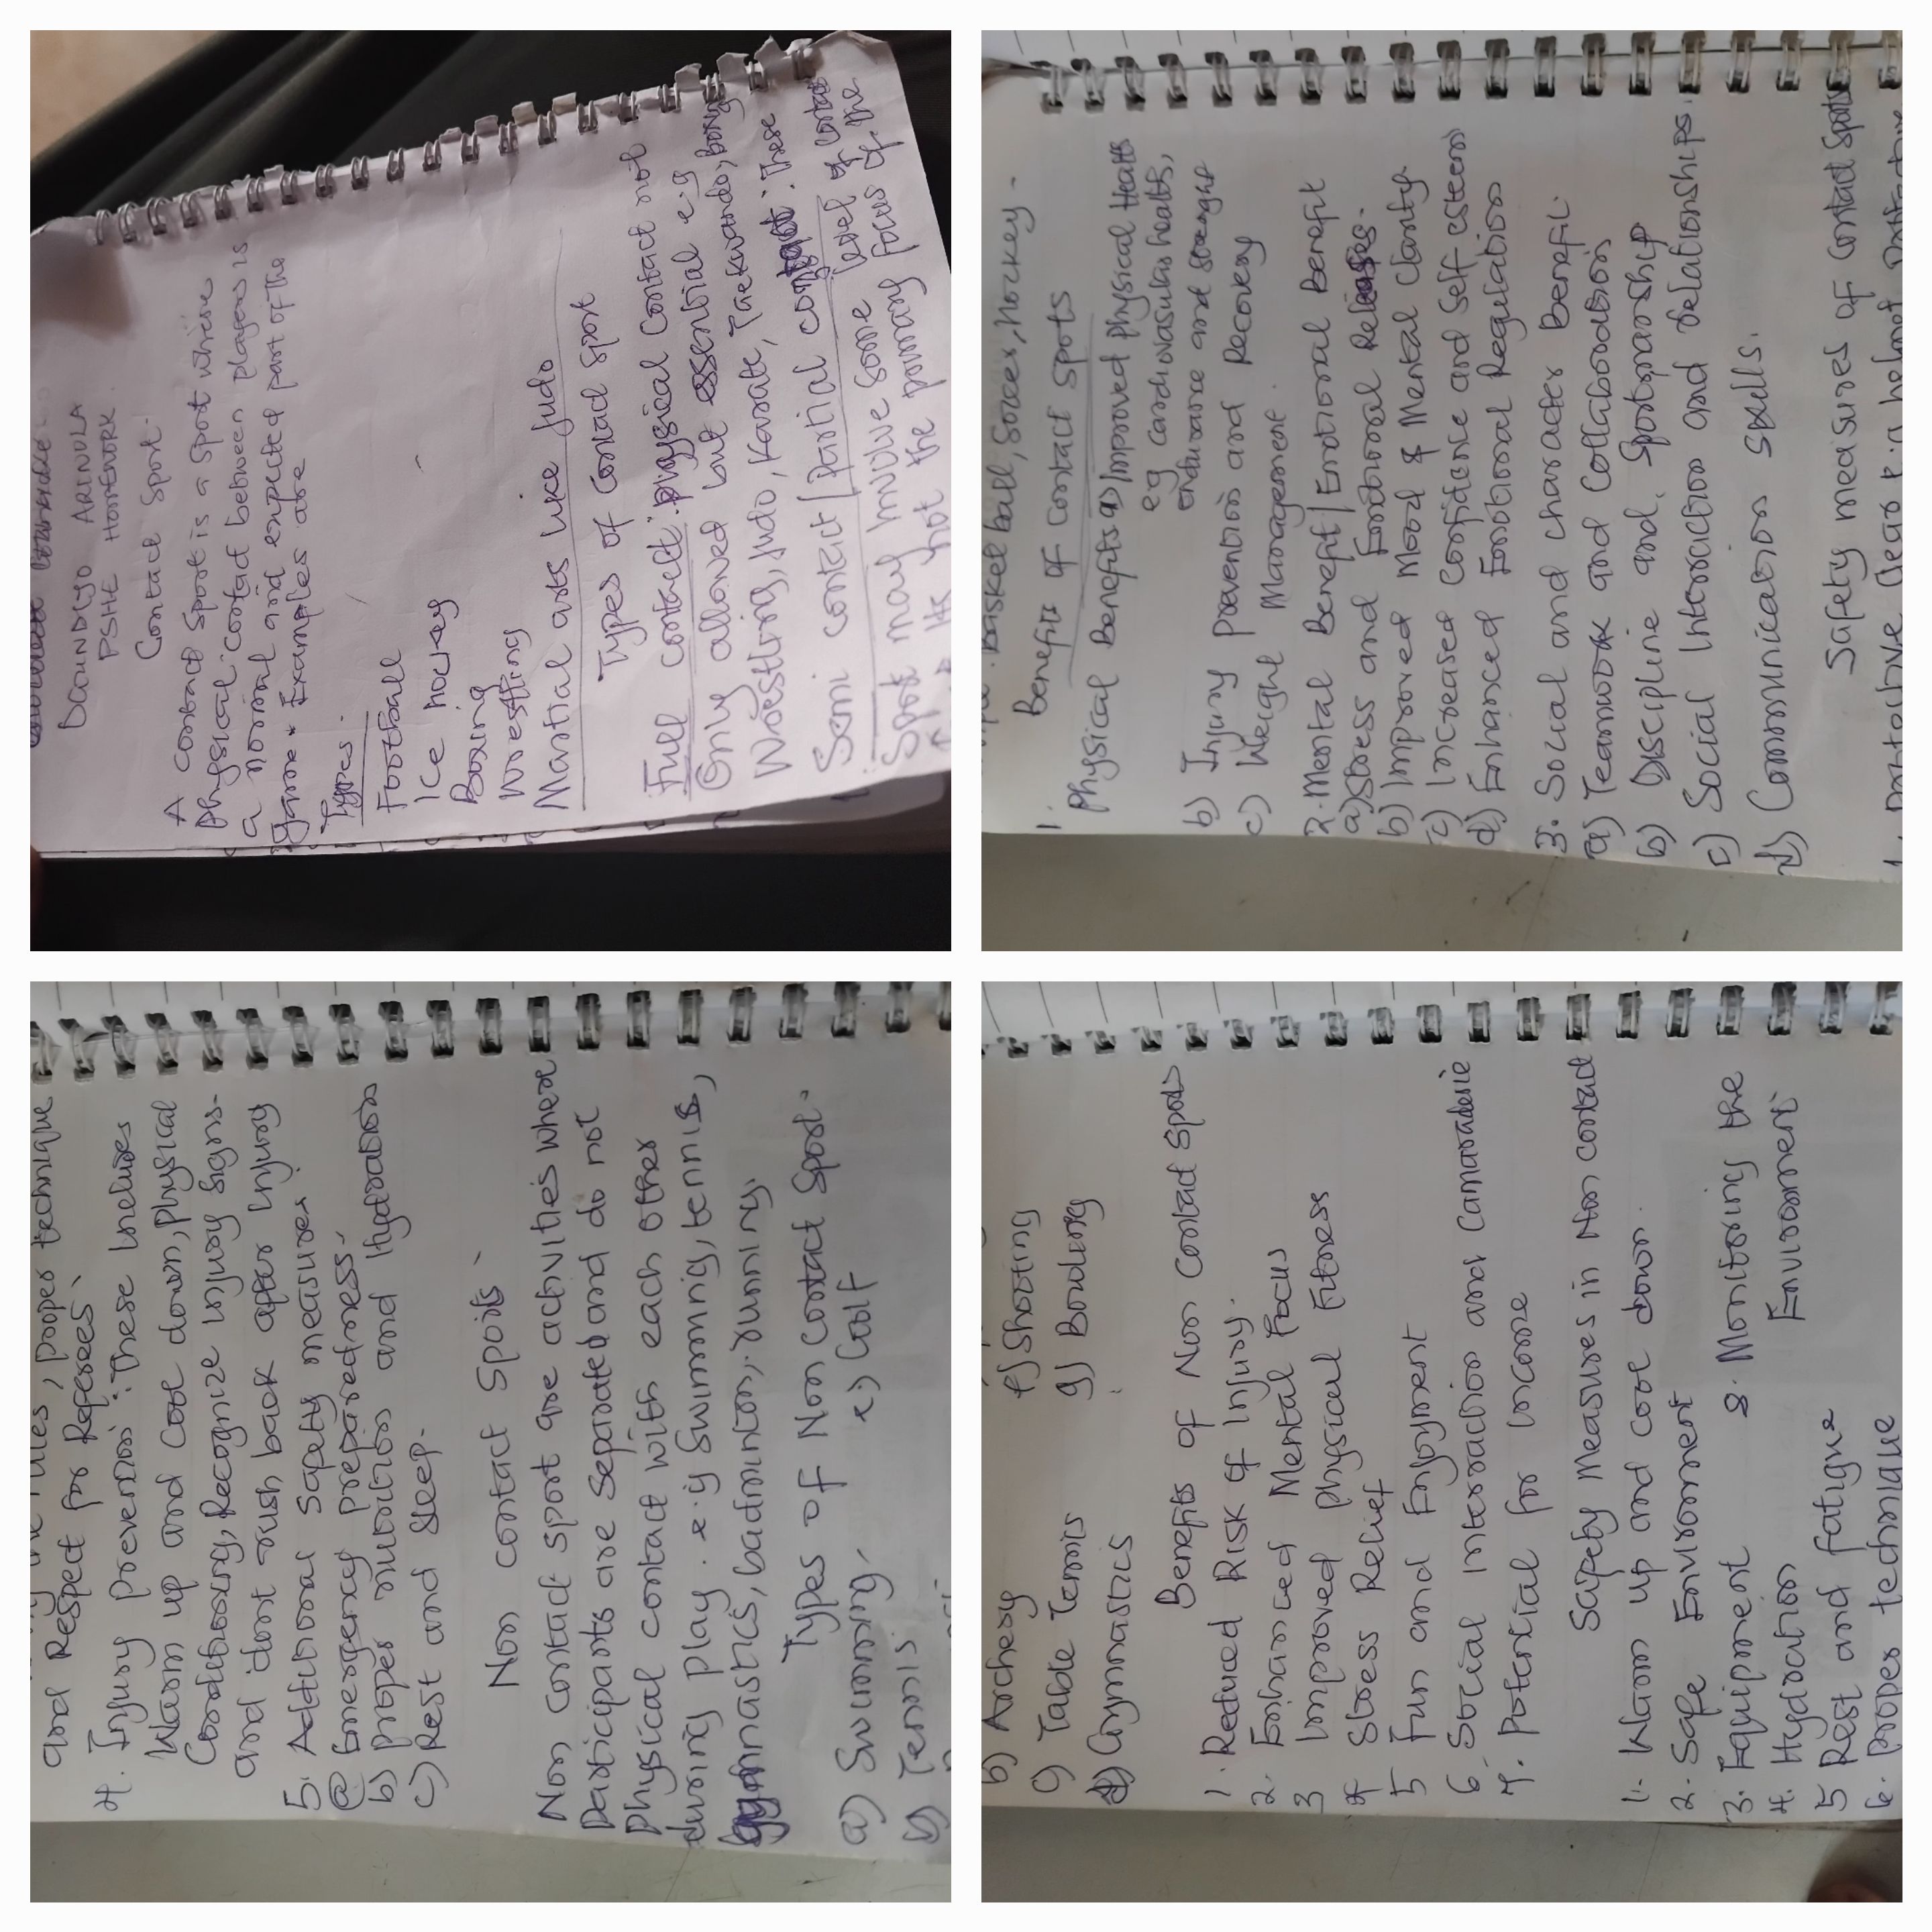 DAUNDIYO ARINOLA
PSHE HOMEWORK
Contact Sport.
A contact Sport is a Sport where
physical contact between players is
a normal and expected part of the
game. Examples are
Types.
Football
Ice Hockey
Boxing
Wrestling
Martial arts like judo
Types of Contact Sport
Full contact: physical contact not
Only allowed but essential e.g
Wrestling, Judo, Karate, Taekwando,
Semi contact / Partial contact: These
Spot may involve some level of contact
its not the primary focus of the
Basket ball, Soccer, Hockey.
Benefits of contact spots
1. Physical Benefits a) Improved physical Health
eg cardiovasular health,
endurance and strenght
b) Injury prevention and Recovery
c) Weight Management.
2. Mental Benefit / Emotional Benefit
a) Stress and Emotional Releases.
b) Improved Mood & Mental Clarity.
c) Increased Confidence and Self esteem
d) Enhanced Emotional Regulation
3. Social and character Benefit.
a) Teamwork and Collaboration
b) Discipline and Sportmanship
c) Social Interaction and Relationships.
d) Communication skills.
Safety measures of Contact Sports
the rules, proper technique
and Respect for Referees.
4. Injury prevention: These includes
Warm up and cool down, Physical
Conditioning, Recognize injury Signs.
and dont rush back after injury
5. Additional Safety measures
@ Emergency preparedness.
b) proper nutrition and Hydration
c) Rest and Sleep.
Non contact Sports.
Non contact sport are activities where
Participants are separated and do not
Physical contact with each other
during play. e.g Swimming, tennis,
gymnastics, badminton, running.
Types of Non Contact Sport.
a) Swimming. e) Golf
b) Tennis.
b) Archery f) Shooting
c) Table Tennis g) Bowling
d) Gymnastics
Benefits of Non Contact Spots
1. Reduced Risk of Injury.
2. Enhanced Mental Focus
3 Improved physical Fitness
4 Stress Relief
5 Fun and Enjoyment
6. Social interaction and Camaraderie
7. Potential for income
Safety Measures in Non contact
1. Warm up and cool down.
2. Safe Environment
3. Equipment 8. Monitoring the
4. Hydration Environment
5 Rest and fatigue
6. Proper technique